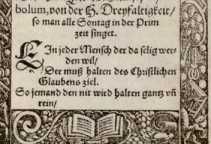 bolum, von der H. Dreyfaltigkeit/
so man alle Sontag in der Prim
zeit singet.
EIn jeder Mensch der da selig wer-
den wil/
Der muß halten des Christlichen
Glaubens ziel.
So jemand den nit wird halten gantz vñ
rein/